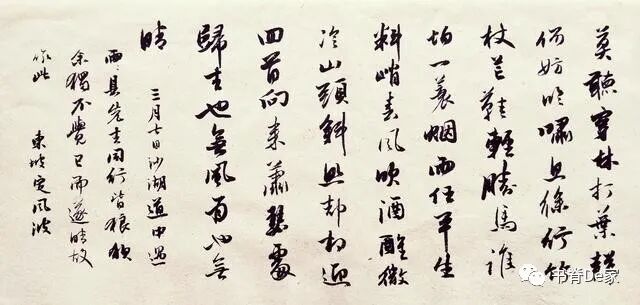 莫聽穿林打葉聲
何妨吟嘯且徐行竹
杖芒鞋輕勝馬誰
怕一蓑烟雨任平生
料峭春風吹酒醒微
冷山頭斜照却相迎
回首向來蕭瑟處
歸去也無風雨也無
晴 三月七日沙湖道中遇
雨〻具先去同行皆狼狽
余獨不覺已而遂晴故
作此 東坡定風波
书脊De家